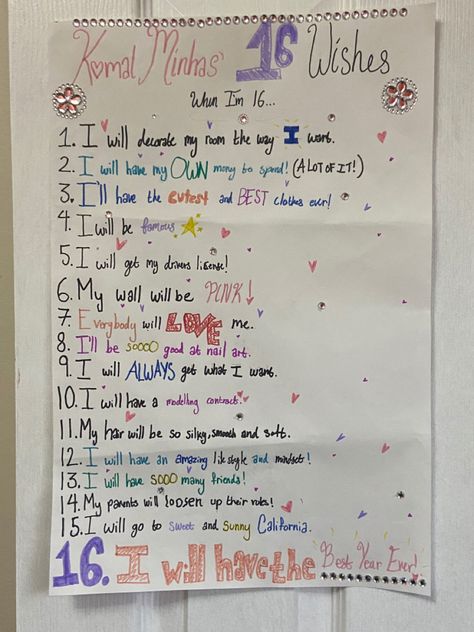 Komal Minhas' 16 Wishes
When I'm 16...
1. I will decorate my room the way I want.
2. I will have my OWN money to spend! (A LOT OF IT!)
3. I'll have the cutest and BEST clothes ever!
4. I will be famous
5. I will get my drivers lisense!
6. My wall will be PINK!
7. Everybody will LOVE me.
8. I'll be soooo good at nail art.
9. I will ALWAYS get what I want.
10. I will have a modelling contract.
11. My hair will be so silky, smooth and soft.
12. I will have an amazing lifestyle and mindset!
13. I will have sooo many friends!
14. My parents will loosen up their rules!
15. I will go to sweet and sunny California.
16. I will have the Best Year Ever!